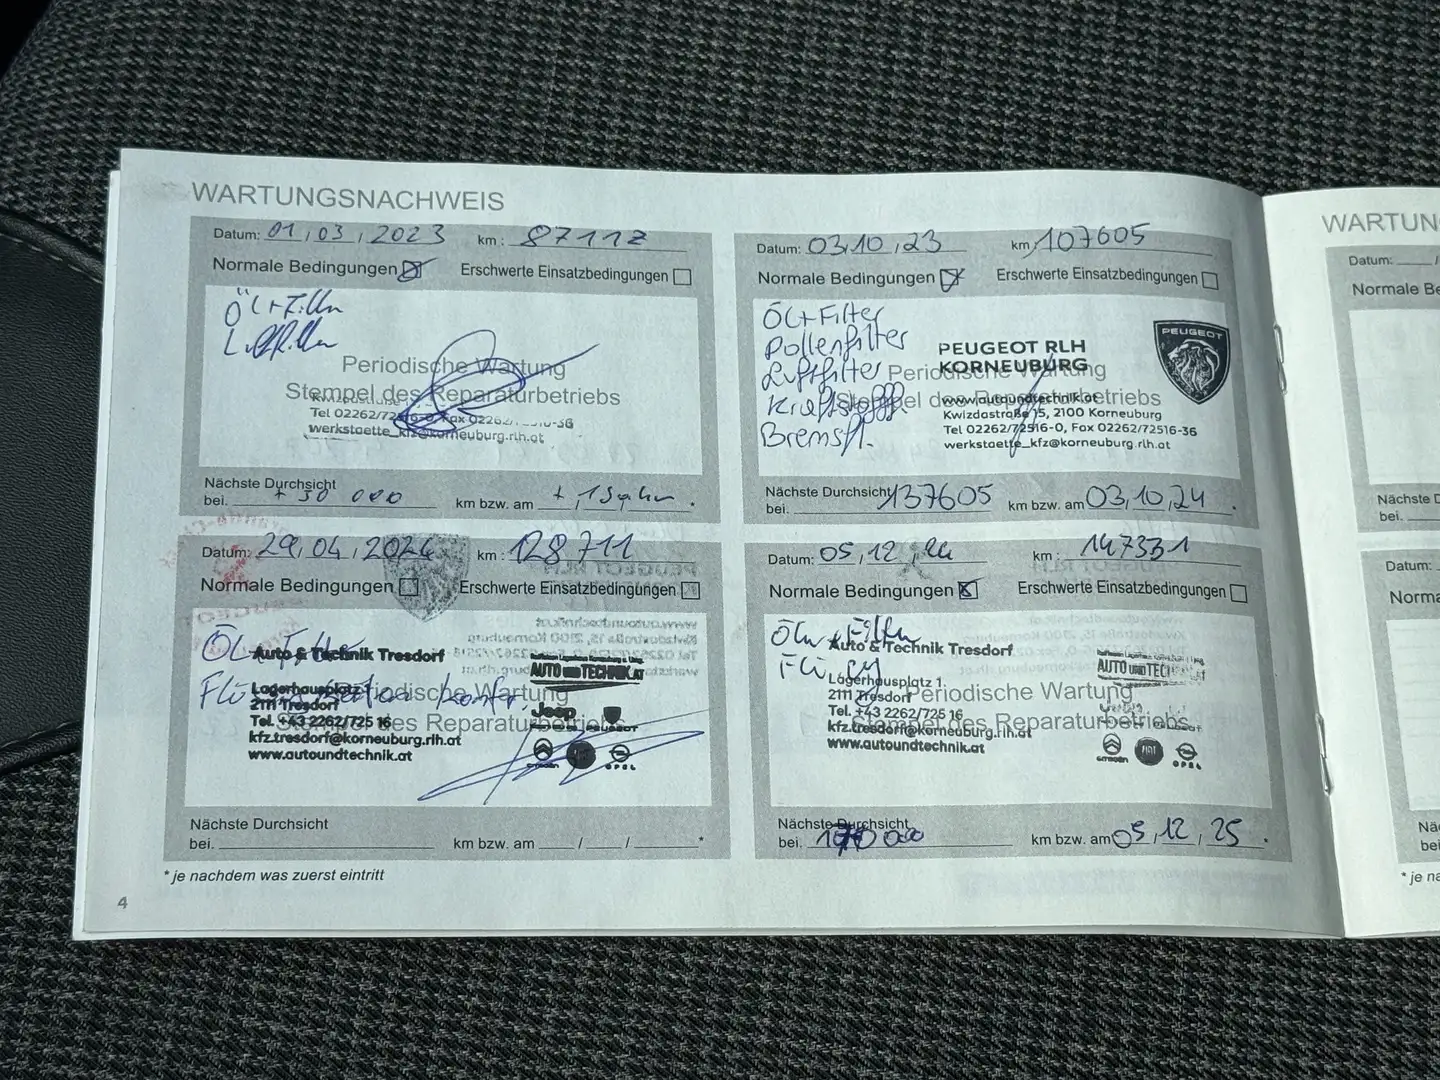 WARTUNGSNACHWEIS
Datum: 01 / 03 / 2023 km : 87112
Normale Bedingungen ☒ Erschwerte Einsatzbedingungen ☐
Öl + Filter
Luftfilter
Periodische Wartung
Stempel des Reparaturbetriebs
Tel 02262/72516-0, Fax 02262/72516-36
werkstaette_kfz@korneuburg.rlh.at
Nächste Durchsicht
bei. + 30 000 km bzw. am + 1 Jahr .
Datum: 03 / 10 / 23 km : 107605
Normale Bedingungen ☒ Erschwerte Einsatzbedingungen ☐
Öl + Filter
Pollenfilter
Luftfilter
Kraftstofff.
Bremsfl.
Periodische Wartung
Stempel des Reparaturbetriebs
PEUGEOT RLH
KORNEUBURG
www.autoundtechnik.at
Kwizdastraße 15, 2100 Korneuburg
Tel 02262/72516-0, Fax 02262/72516-36
werkstaette_kfz@korneuburg.rlh.at
PEUGEOT
Nächste Durchsicht
bei. 137605 km bzw. am 03 / 10 / 24 .
Datum: 29 / 04 / 2024 km : 128711
Normale Bedingungen ☐ Erschwerte Einsatzbedingungen ☐
Öl
Periodische Wartung
des Reparaturbetriebs
Auto & Technik Tresdorf
Lagerhausplatz 1
2111 Tresdorf
Tel. +43 2262/725 16
kfz.tresdorf@korneuburg.rlh.at
www.autoundtechnik.at
AUTO UND TECHNIK.AT
Jeep
PEUGEOT
CITROËN FIAT OPEL
Nächste Durchsicht
bei. km bzw. am / / *
Datum: 05 / 12 / 24 km : 147331
Normale Bedingungen ☒ Erschwerte Einsatzbedingungen ☐
Periodische Wartung
Stempel des Reparaturbetriebs
Auto & Technik Tresdorf
Lagerhausplatz 1.
2111 Tresdorf
Tel. +43 2262/725 16
kfz.tresdorf@korneuburg.rlh.at
www.autoundtechnik.at
AUTO UND TECHNIK.AT
CITROËN FIAT OPEL
Nächste Durchsicht
bei. 170 000 km bzw. am 05 / 12 / 25 .
* je nachdem was zuerst eintritt
4
WARTUN
Datum: /
Normale Be
Nächste D
bei.
Datum:
Norma
Nä
bei
* je na